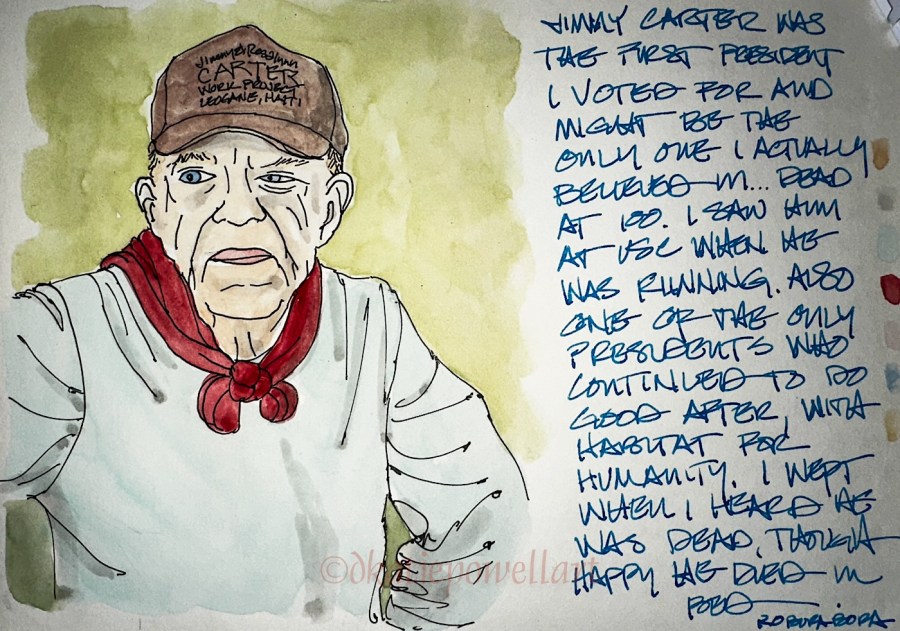 Jimmy & Rosalynn
CARTER
WORK PROJECT
LEOGANE, HAITI
JIMMY CARTER WAS
THE FIRST PRESIDENT
I VOTED FOR AND
MIGHT BE THE
ONLY ONE I ACTUALLY
BELIEVED IN... DEAD
AT 100. I SAW HIM
AT USC WHEN HE
WAS RUNNING. ALSO
ONE OF THE ONLY
PRESIDENTS WHO
CONTINUED TO DO
GOOD AFTER, WITH
HABITAT FOR
HUMANITY. I WEPT
WHEN I HEARD HE
WAS DEAD, THOUGH
HAPPY HE DIED IN
BED
©dkatiepowellart